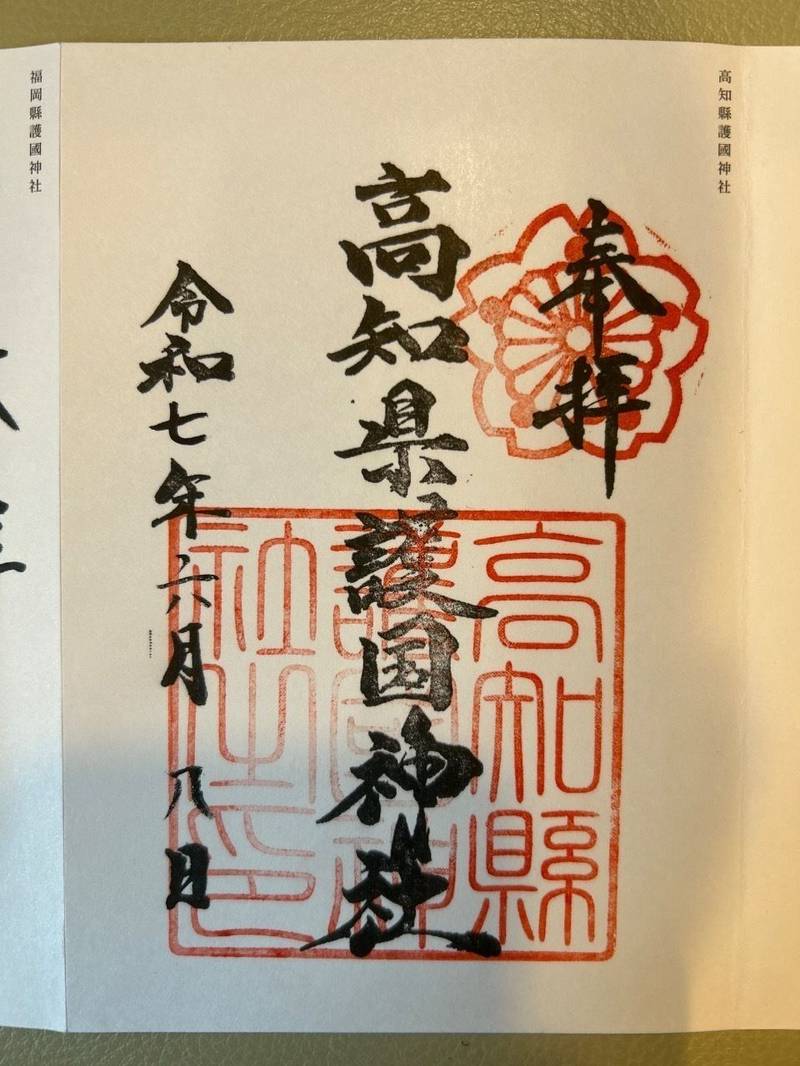 高知縣護國神社
奉拝
高知県護国神社
令和七年六月八日
高知縣
護國神
社之印
福岡縣護國神社